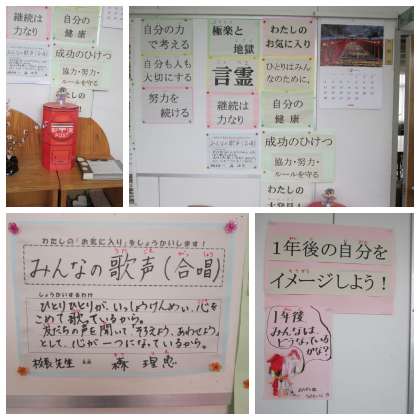 継続は
力なり
自分の
健康
成功のひけつ
協力・努力・
ルールを守る
POST
自分の力
で考える
極楽と
地獄
わたしの
お気に入り
自分も人も
大切にする
言霊
ひとりはみん
なのために、
努力を
続ける
継続は
力なり
自分の
健康
みんなの歌声(合唱)
成功のひけつ
協力・努力・
ルールを守る
わたしの
わたしの「お気に入り」をしょうかいします!
みんなの歌声(合唱)
しょうかいするわけ
ひとりひとりが、いっしょうけんめい、心を
こめて歌っているから。
友だちの声を聞いて「そろえよう、あわせよう」
として、心が一つになっているから。
校長先生
1年後の自分を
イメージしよう!
1年後
みんなは、
どうなっている
かな?